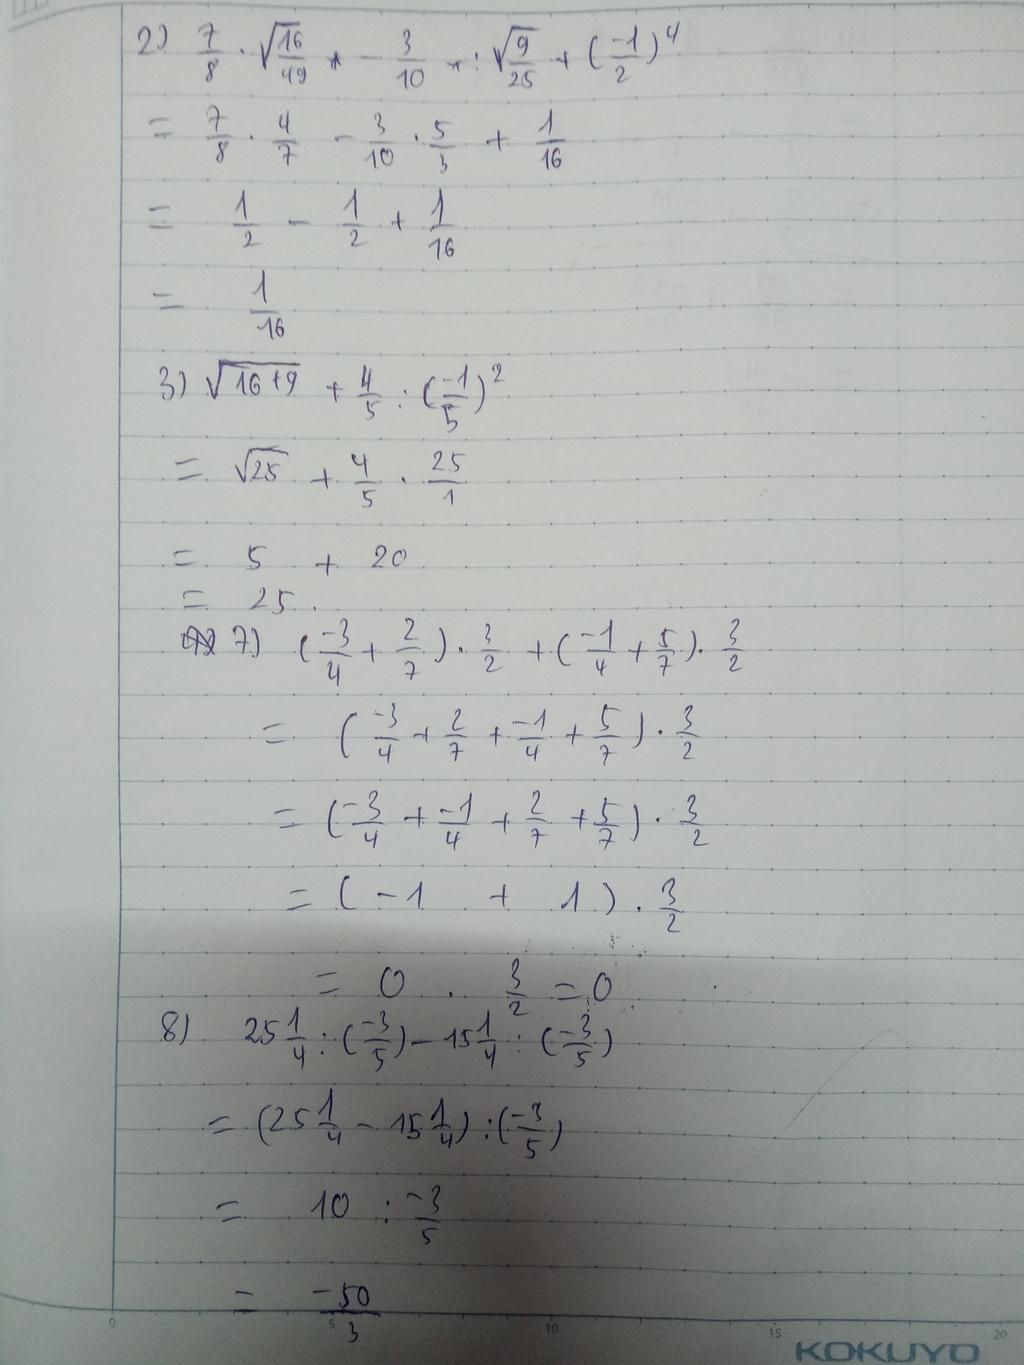 2) 7/8 . √16/49 - 3/10 : √9/25 + (-1/2)^4
= 7/8 . 4/7 - 3/10 . 5/3 + 1/16
= 1/2 - 1/2 + 1/16
= 1/16
3) √16+9 + 4/5 : (-1/5)^2
= √25 + 4/5 . 25/1
= 5 + 20
= 25.
7) (-3/4 + 2/7) . 3/2 + (-1/4 + 5/7) . 3/2
= (-3/4 + 2/7 + -1/4 + 5/7) . 3/2
= (-3/4 + -1/4 + 2/7 + 5/7) . 3/2
= (-1 + 1) . 3/2
= 0 . 3/2 = 0
8) 25 1/4 : (-3/5) - 15 1/4 : (-3/5)
= (25 1/4 - 15 1/4) : (-3/5)
= 10 : -3/5
= -50/3
0 5 10 15 20
KOKUYO